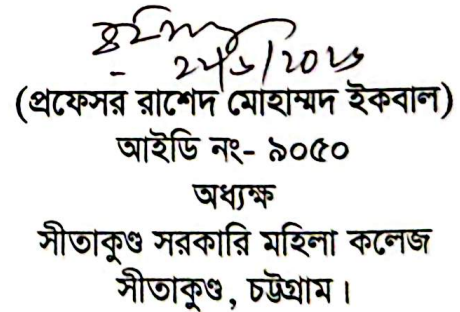 (প্রফেসর রাশেদ মোহাম্মদ ইকবাল)
আইডি নং- ৯০৫০
অধ্যক্ষ
সীতাকুণ্ড সরকারি মহিলা কলেজ
সীতাকুণ্ড, চট্টগ্রাম।